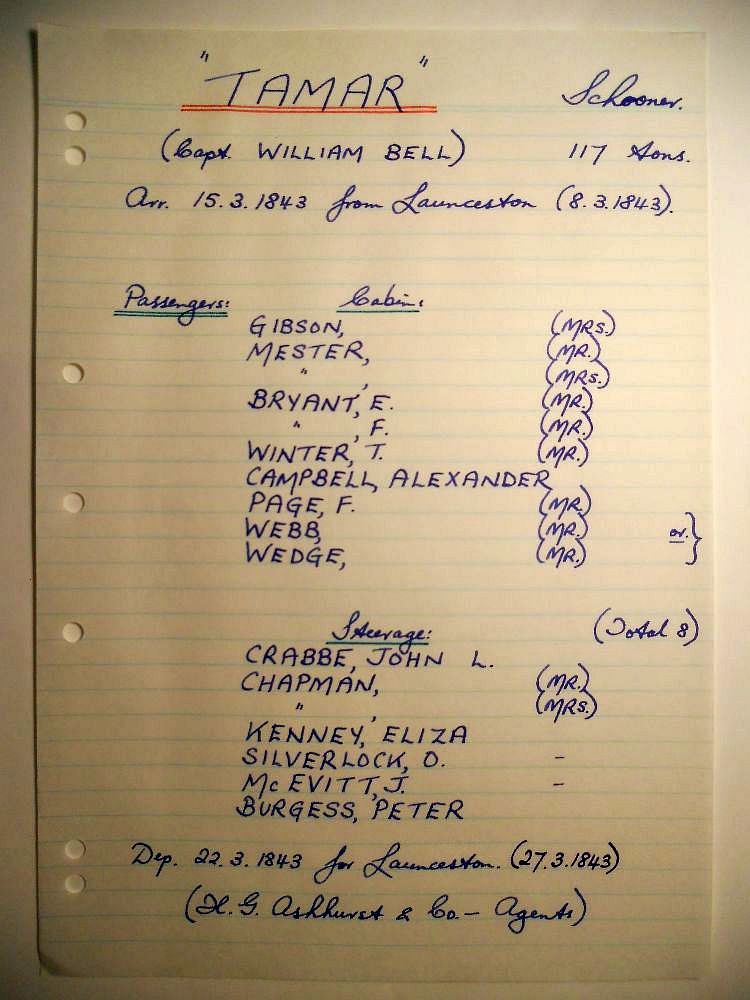 "TAMAR" Schooner.
(Capt. WILLIAM BELL) 117 tons.
Arr. 15.3.1843 from Launceston (8.3.1843).
Passengers: Cabin:
GIBSON, (MRS.)
MESTER, (MR.)
" , (MRS.)
BRYANT, E. (MR.)
" , F. (MR.)
WINTER, T. (MR.)
CAMPBELL, ALEXANDER
PAGE, F. (MR.)
WEBB, (MR.)
WEDGE, (MR.) or. }
Steerage: (Total 8)
CRABBE, JOHN L.
CHAPMAN, (MR.)
" , (MRS.)
KENNEY, ELIZA
SILVERLOCK, O. -
McEVITT, J. -
BURGESS, PETER
Dep. 22.3.1843 for Launceston. (27.3.1843)
(H.G. Ashhurst & Co. - Agents)